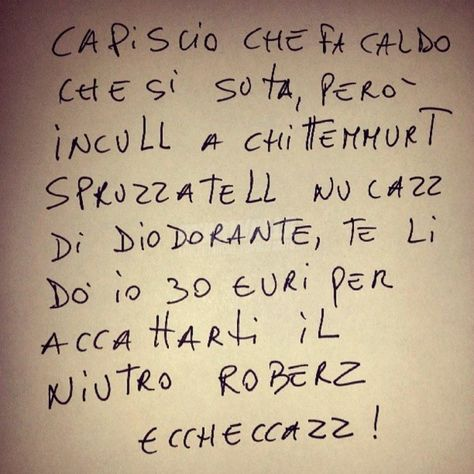 CAPISCIO CHE FA CALDO
CHE SI SUTA, PERÒ
INCULL A CHITTEMMURT
SPRUZZATELL NU CAZZ
DI DIODORANTE, TE LI
DÒ IO 30 EURI PER
ACCATTARTI IL
NIUTRO ROBERZ
ECCHECCAZZ!